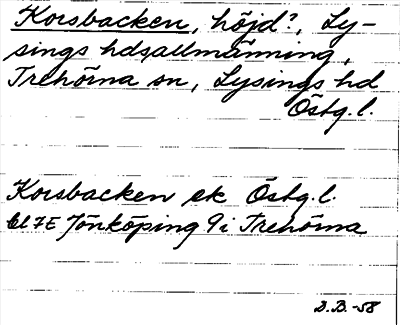 Korsbacken, höjd?, Ly-
sings hdsallmänning,
Trehörna sn, Lysings hd
Östg.l.
Korsbacken ek Östg.l.
bl 7E Jönköping 9i Trehörna
B.B.-58